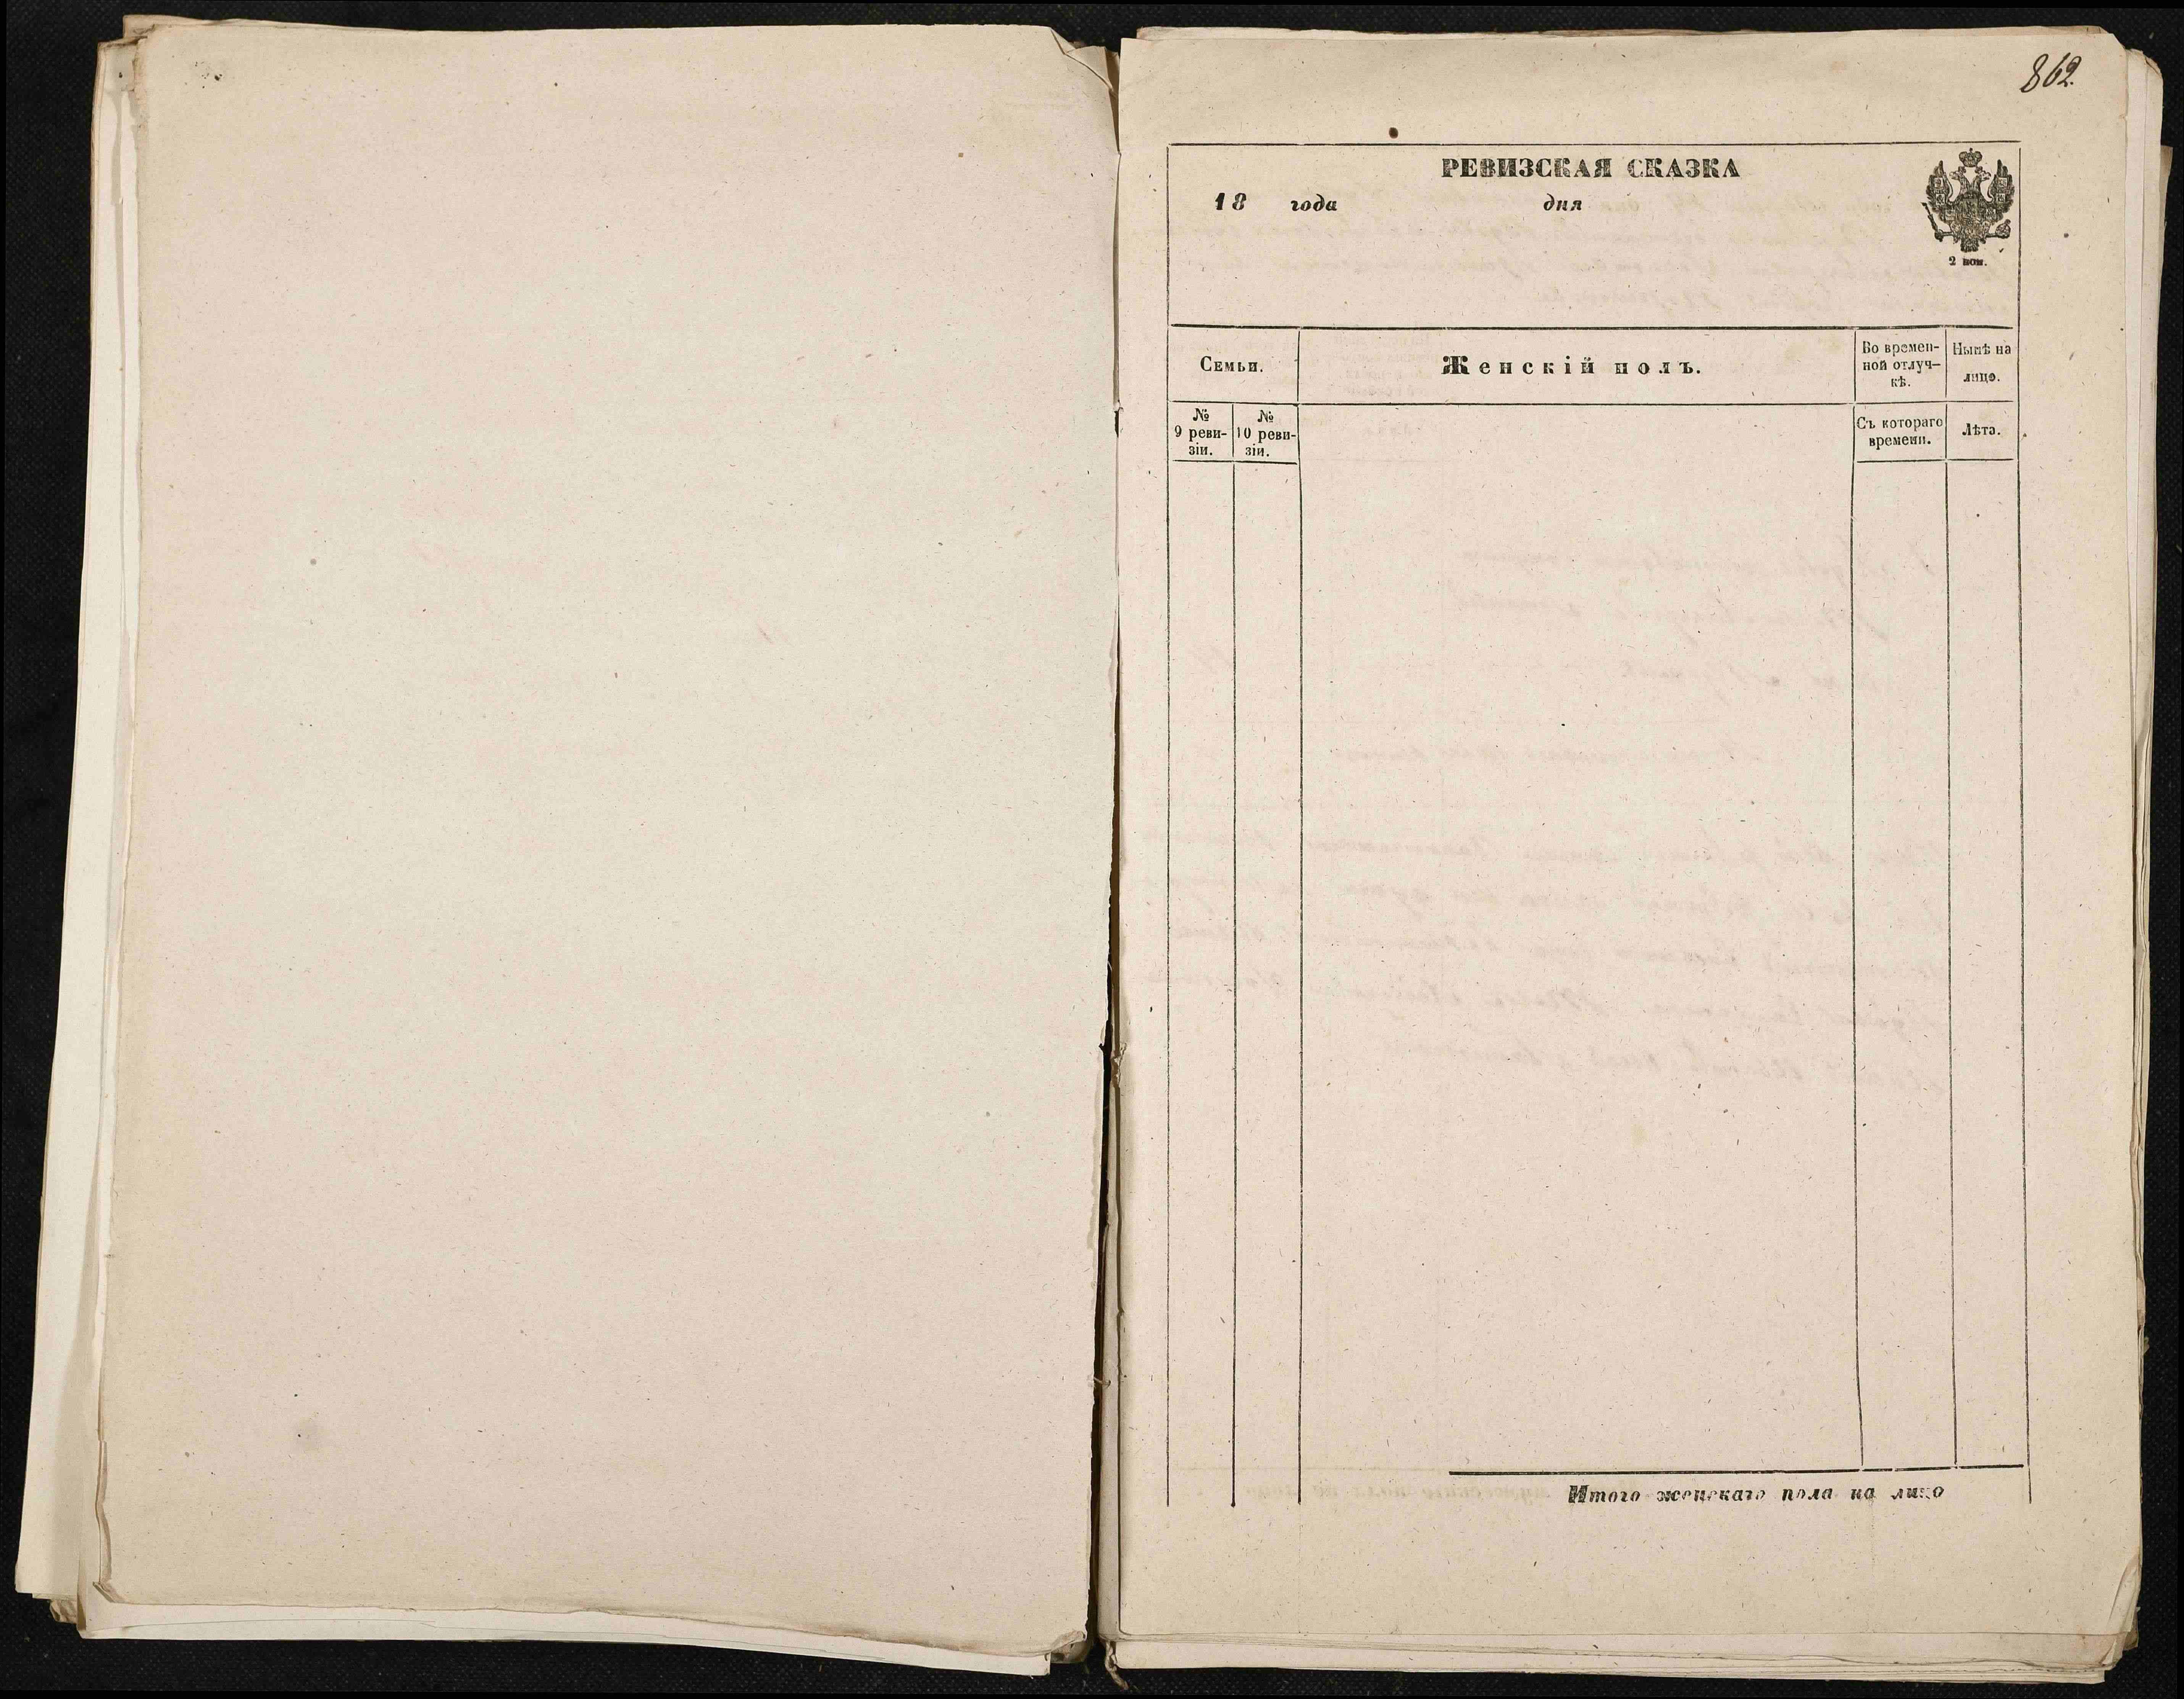 862.
РЕВИЗСКАЯ СКАЗКА
18 года дня
2 коп.
Семьи.
Женскій полъ.
Во времен-
ной отлуч-
кѣ.
Нынѣ на
лицо.
№
9 реви-
зіи.
№
10 реви-
зіи.
Съ котораго
времени.
Лѣта.
Итого женскаго пола на лицо